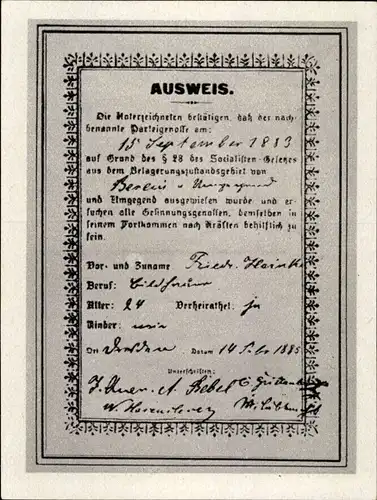 AUSWEIS.
Die Unterzeichneten bestätigen, daß der nach-
benannte Parteigenosse am:
15 September 1883
auf Grund des § 28 des Socialisten-Gesetzes
aus dem Belagerungszustandsgebiet von
Berlin u Umgegend
und Umgegend ausgewiesen wurde und er-
suchen alle Gesinnungsgenossen, demselben in
seinem Fortkommen nach Kräften behilflich zu
sein.
Vor- und Zuname Friedr.
Beruf: Bildhauer
Alter: 24 Verheirathet: ja
Kinder:
Ort Dresden Datum 14 1885
Unterschriften:
J. Auer A Bebel
W. Hasenclever W. Liebknecht